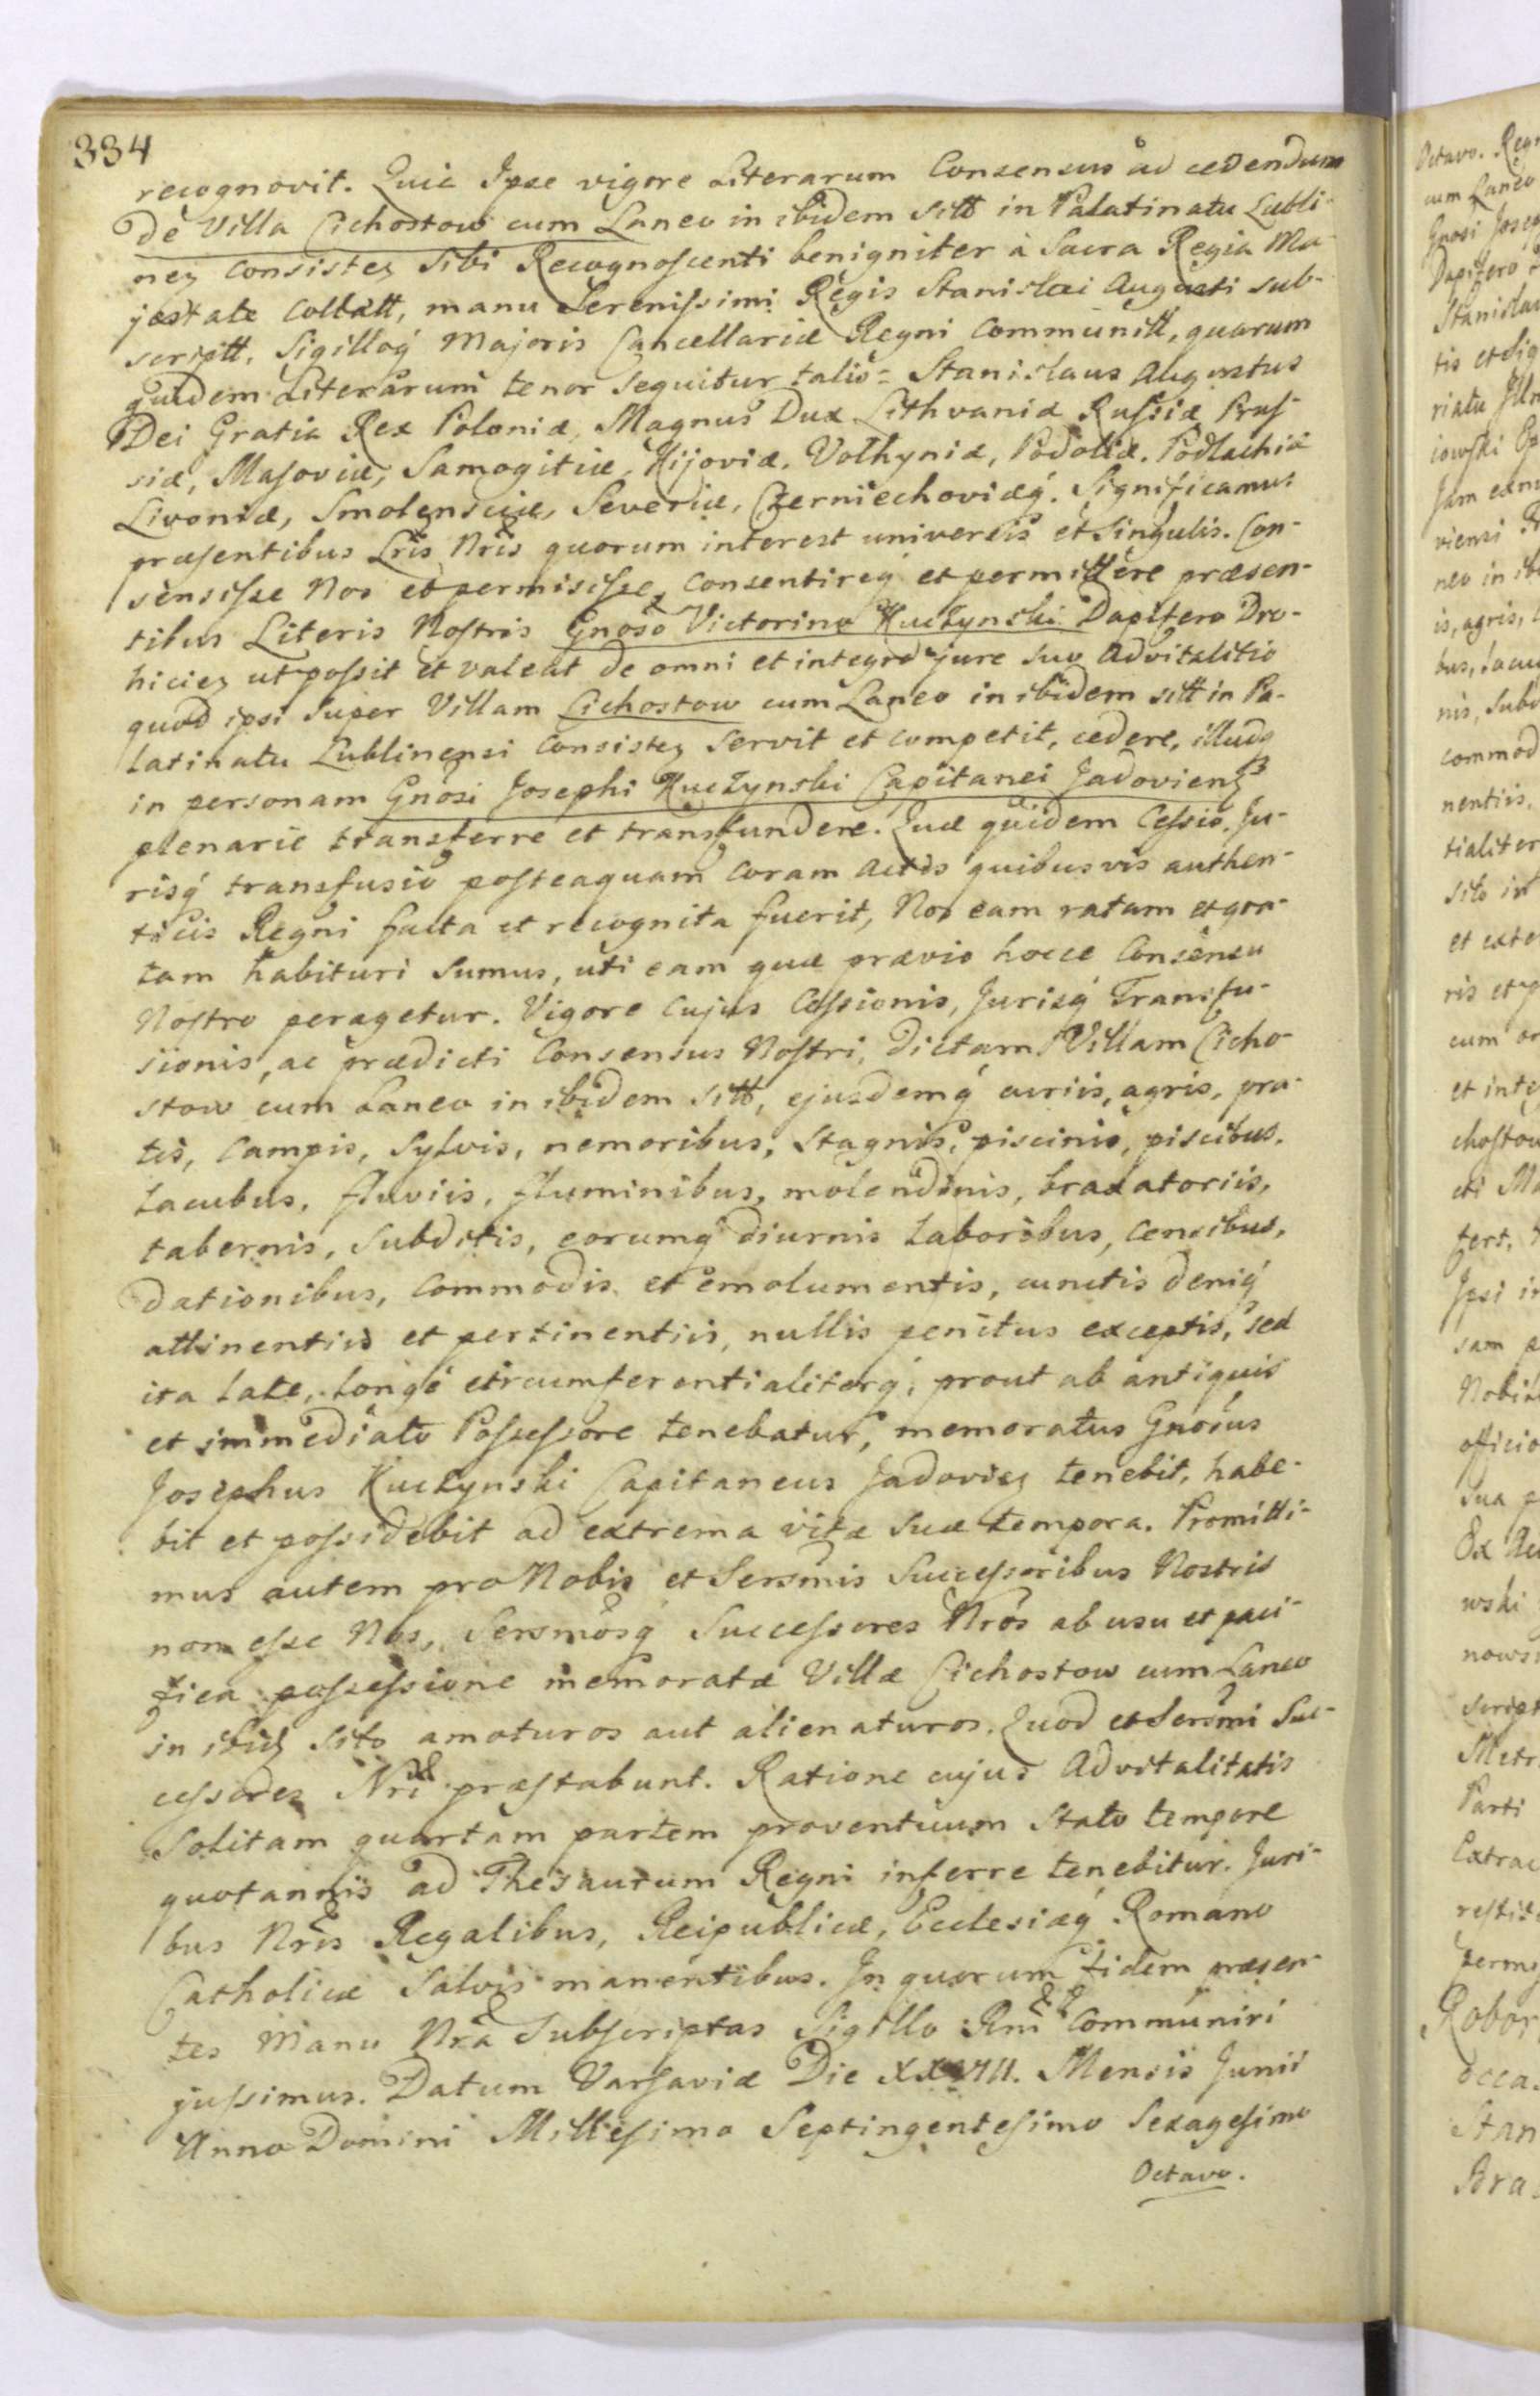 334
recognovit. Quia Ipse vigore Literarum Consensus ad cedendum
de Villa Cichostow cum Laneo in ibidem sitt in Palatinatu Lubli-
nen consisten sibi Recognoscenti benigniter à Sacra Regia Ma-
jestate Collatt, manu Serenissimi Regis Stanislai Augusti sub-
scriptt, Sigilloq́ Majoris Cancellariæ Regni Communitt, quarum
quidem Literarum tenor sequitur talis = Stanislaus Augustus
Dei Gratia Rex Poloniæ, Magnus Dux Lithvaniæ Russiæ Prus-
siæ, Masoviæ, Samogitiæ, Kijoviæ, Volhyniæ, Podoliæ, Podlachiæ
Livoniæ, Smolensciæ, Severiæ, Czerniechoviæq́. Significamus
præsentibus Lris Nris quorum interest universis et Singulis. Con-
sensisse Nos et permisisse, consentireq́ et permittere præsen-
tibus Literis Nostris Gnoso Victorino Kuczynski Dapifero Dro-
hicien ut possit et valeat de omni et integro jure suo Advitalitio
quod ipsi super Villam Cichostow cum Laneo in ibidem sitt in Pa-
latinatu Lublinensi Consisten servit et competit, cedere, illudq
in personam Gnosi Josephi Kuczynski Capitanei Jadoviens
plenarie transferre et transfundere. Quæ quidem Cessio, Ju-
risq́ transfusio posteaquam coram Actis quibusvis authen-
ticis Regni facta et recognita fuerit, Nos eam ratam et gra-
tam habituri sumus, uti eam quæ prævio hocce Consensu
Nostro peragetur. Vigore cujus Cessionis, Jurisq́ Transfu-
sionis, ac prædicti Consensus Nostri, dictam Villam Cicho-
stow cum Laneo in ibidem sitt, ejusdemq́ curiis, agris, pra-
tis, Campis, Sylvis, nemoribus, Stagnis, piscinis, piscibus,
Lacubus, fluviis, fluminibus, molendinis, braxatoriis,
tabernis, Subditis, eorumq́ diurnis Laboribus, Censibus,
dationibus, Commodis et emolumentis, cunctis deniq́
attinentiis et pertinentiis, nullis penitus exceptis, sed
ita Late, Longé circumferentialiterq́, prout ab antiquis
et immediato Possessore tenebatur, memoratus Gnosus
Josephus Kuczynski Capitaneus Jadovien tenebit, habe-
bit et possidebit ad extrema vitæ suæ tempora. Promitti-
mus autem pro Nobis et Sersmis Successoribus Nostris
non esse Nos, Sersmosq́ Successores Nros ab usu et paci-
fica possessione memoratæ Villæ Cichostow cum Laneo
in ibid sito amoturos aut alienaturos. Quod et Sersmi Suc-
cessores Nri præstabunt. Ratione cujus Advitalitatis
Solitam quartam partem proventuum stato tempore
quotannis ad Thesaurum Regni inferre tenebitur. Juri-
bus Nris Regalibus, Reipublicæ, Ecclesiæq́ Romano
Catholicæ Salvis manentibus. In quorum fidem præsen-
tes Manu Nra Subscriptas Sigillo Rni Communiri
jussimus. Datum Varsaviæ Die Mensis Junii
Anno Domini Millesimo Septingentesimo Sexagesimo
Octavo.